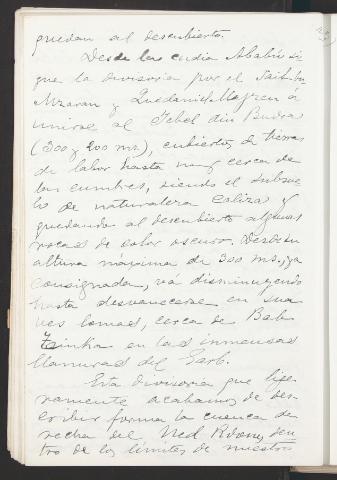 quedan al descubierto.
Desde las cudia Ababú si
gue la divisoria por el
Mzaran y Quedani á
unirse al Yebel din Budra
(300 y 200 ms), cubiertos de tierras
de labor hasta muy cerca de
las cumbres, siendo el subsue
lo de naturaleza caliza y
quedando al descubierto algunas
rocas de color oscuro. Desde su
altura máxima de 300 ms., ya
consignada, vá disminuyendo
hasta desvanecerse en sua
ves lomas, cerca de Bab
Tzinka en las inmensas
llanuras del Garb.
Esta divisoria que lige
ramente acabamos de des
cribir forma la cuenca de
recha del Ued Rdom, den
tro de los límites de nuestro